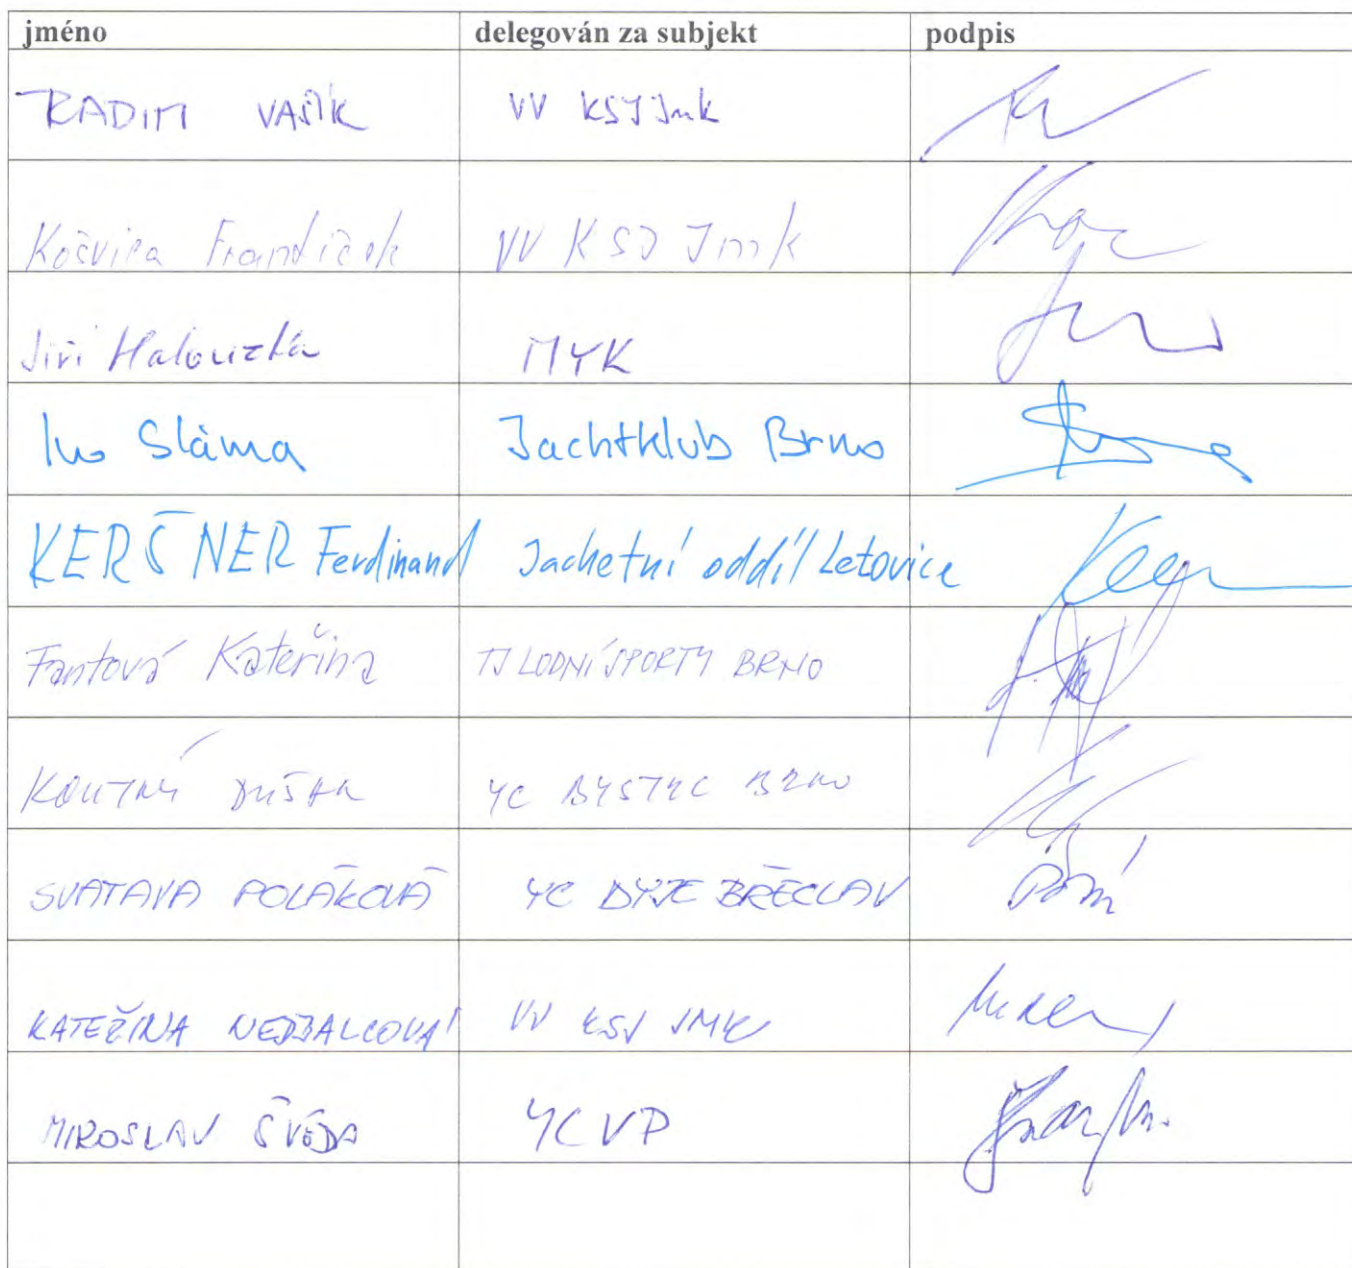 jméno delegován za subjekt podpis
RADIM VAŠÍK VV KSJ JmK
Kočvica František VV KSJ JmK
Jiří Halouzka MYK
Ivo Sláma Jachtklub Brno
KERŠNER Ferdinand Jachetní oddíl Letovice
Fantová Kateřina TJ LODNÍ SPORTY BRNO
KOUTNÝ DUŠAN YC BYSTRC BRNO
SVATAVA POLÁKOVÁ YC DYJE BŘECLAV
KATEŘINA NEDBALCOVÁ VV KSJ JMK
MIROSLAV ŠVÉDA YCVP